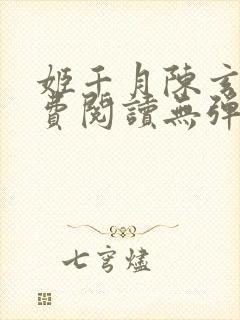 姬千月陳玄
費閱讀無彈
七穹燼